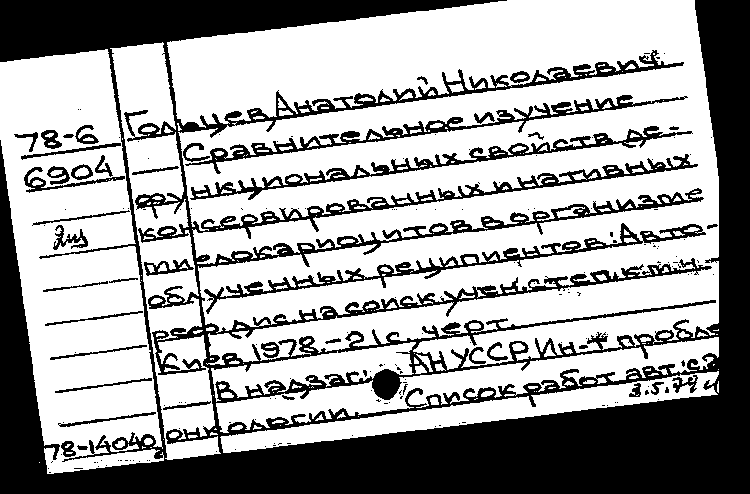 78-6
6904
Гольцев, Анатолий Николаевич.
Сравнительное изучение
функциональных свойств де-
консервированных и нативных
миелокариоцитов в организме
облученных реципиентов: Авто-
реф. дис. на соиск. учен. степ. к. м. н.
Киев, 1978. - 21 с., черт.
В надзаг.: АН УССР, Ин-т пробле
онкологии. Список работ авт.: с.
78-14040
3.5.79